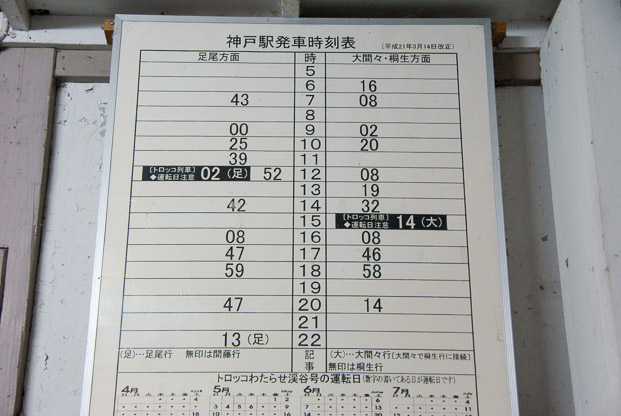 神戸駅発車時刻表 (平成21年3月14日改正)
足尾方面 時 大間々・桐生方面
5
6 16
43 7 08
8
00 9 02
25 10 20
39 11
[トロッコ列車] ◆運転日注意 02 (足) 52 12 08
13 19
42 14 32
15 [トロッコ列車] ◆運転日注意 14 (大)
08 16 08
47 17 46
59 18 58
19
47 20 14
21
13 (足) 22
(足)…足尾行 無印は間藤行 記事 (大)…大間々行(大間々で桐生行に接続)
無印は桐生行
トロッコわたらせ渓谷号の運転日(数字の書いてある日が運転日です)
4月 5月 6月 7月